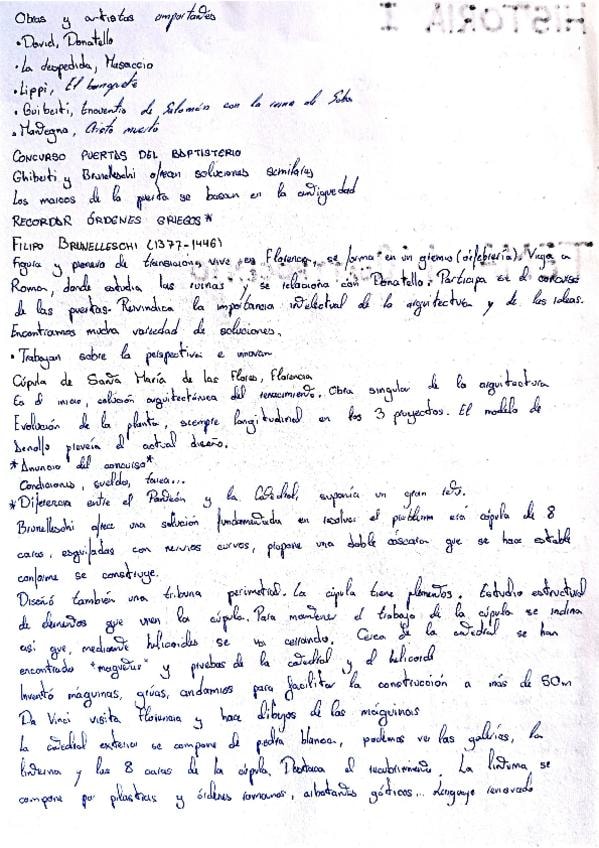 Obras y artistas importantes
• David, Donatello
• La despedida, Masaccio
• Lippi, El banquete
• Guiberti, Encuentro de Salomón con la reina de Saba
• Mantegna, Cristo muerto
CONCURSO PUERTAS DEL BAPTISTERIO
Ghiberti y Brunelleschi ofrecen soluciones similares
Los marcos de la puerta se basan en la antiguedad
RECORDAR ÓRDENES GRIEGOS *
FILIPO BRUNELLESCHI (1377-1446)
Figura y pionero de transición, vive en Florencia, se forma en un gremio (orfebrería). Viaja a
Roma, donde estudia las ruinas y se relaciona con Donatello. Participa en el concurso
de las puertas. Reivindica la importancia intelectual de la arquitectura y de las ideas.
Encontramos mucha variedad de soluciones.
• Trabajan sobre la perspectiva e innovan
Cúpula de Santa María de las Flores, Florencia
Es el inicio, eclosión arquitectónica del renacimiento. Obra singular de la arquitectura
Evolución de la planta, siempre longitudinal en los 3 proyectos. El modelo de
preveía el actual diseño.
*Anuncio del concurso*
Condiciones, sueldo, tarea...
*Diferencia entre el Panteón y la Catedral, suponía un gran reto.
Brunelleschi ofrece una solución fundamentada en resolver el problema era cúpula de 8
caras, esquifadas con nervios curvos, propone una doble cáscara que se hace estable
conforme se construye.
Diseñó también una tribuna perimetral. La cúpula tiene plementos. Estudio estructural
de elementos que unen la cúpula. Para mantener el trabajo de la cúpula se inclina
así que, mediante helicoides se va cerrando. Cerca de la catedral se han
encontrado "maquetas" y pruebas de la catedral y el helicoide
Inventó máquinas, grúas, andamios para facilitar la construcción a más de 50m
Da Vinci visita Florencia y hace dibujos de las máquinas
La catedral exterior se compone de piedra blanca, podemos ver las galerías, la
linterna y las 8 caras de la cúpula. Destaca el recubrimiento. La linterna se
compone por pilastras y órdenes romanos, arbotantes góticos... Lenguaje renovado
HISTORIA I